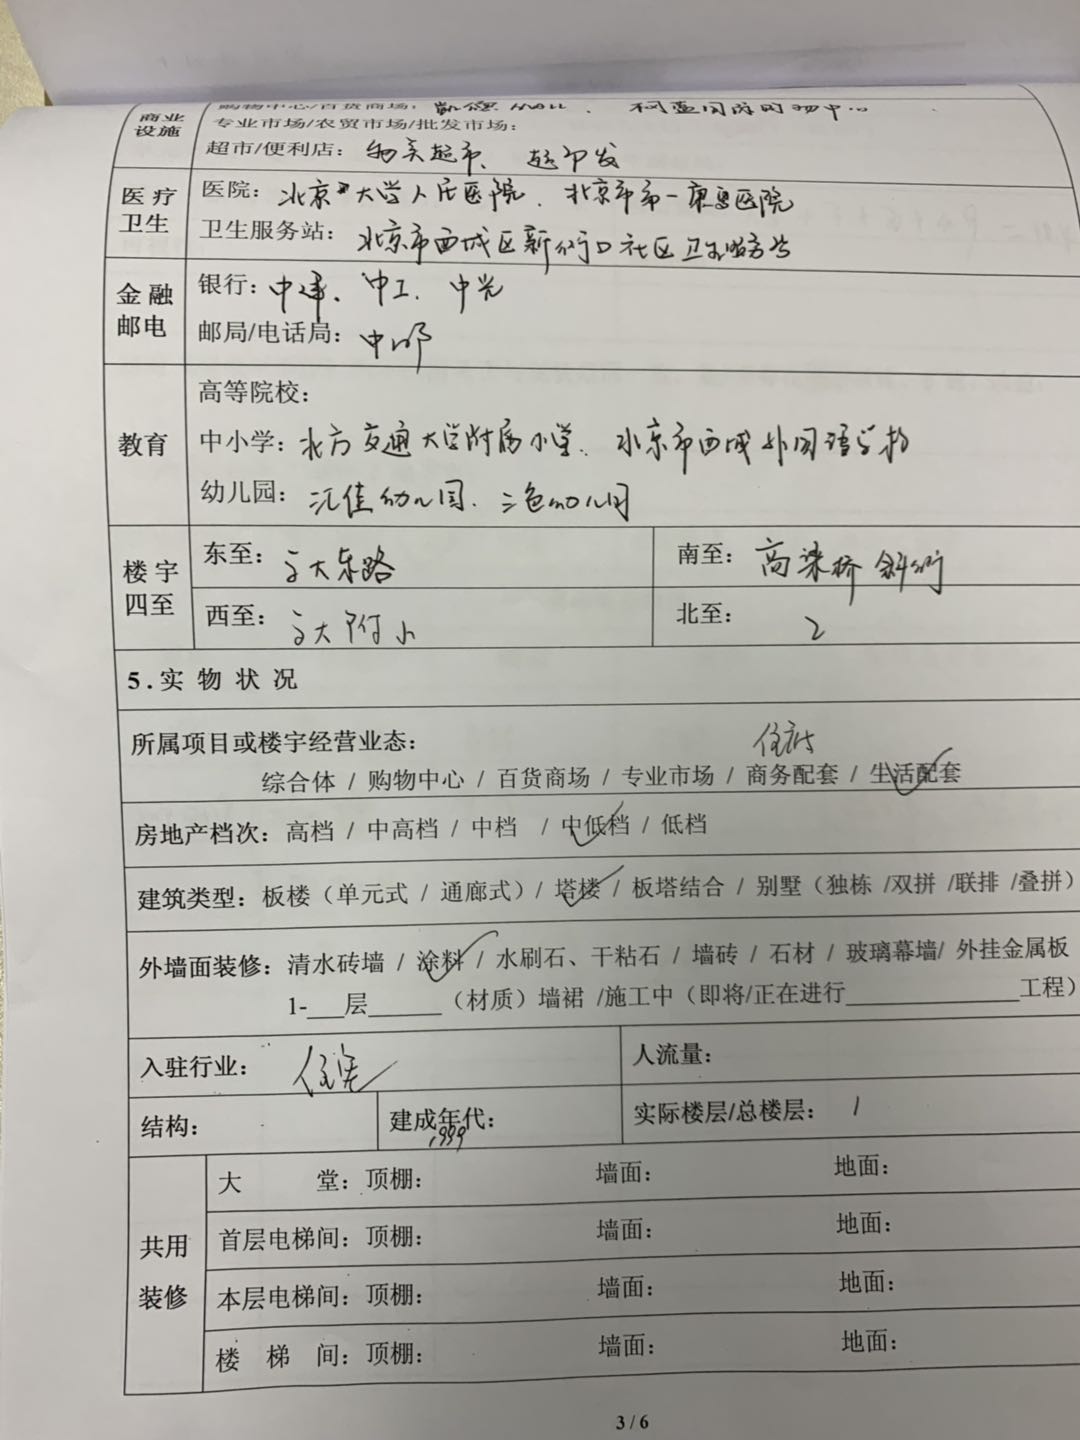 购物中心/百货商场：凯德MALL、
商业设施
专业市场/农贸市场/批发市场：
超市/便利店：物美超市、超市发
医疗卫生
医院：北京大学人民医院、北京市第一康复医院
卫生服务站：北京市西城区新街口社区卫生服务站
金融邮电
银行：中建、中工、中光
邮局/电话局：中邮
教育
高等院校：
中小学：北方交通大学附属小学、北京市西城外国语学校
幼儿园：汇佳幼儿园、三色幼儿园
楼宇四至
东至：交大东路
南至：高梁桥斜街
西至：交大附小
北至：
5.实物状况
所属项目或楼宇经营业态：
综合体 / 购物中心 / 百货商场 / 专业市场 / 商务配套 / 生活配套
房地产档次：高档 / 中高档 / 中档 / 中低档 / 低档
建筑类型：板楼（单元式 / 通廊式）/ 塔楼 / 板塔结合 / 别墅（独栋 /双拼 /联排 /叠拼）
外墙面装修：清水砖墙 / 涂料 / 水刷石、干粘石 / 墙砖 / 石材 / 玻璃幕墙/ 外挂金属板
1-___层______（材质）墙裙 /施工中（即将/正在进行______________工程）
入驻行业：住宅
人流量：
结构：
建成年代：1999
实际楼层/总楼层：1
共用装修
大堂：顶棚： 墙面： 地面：
首层电梯间：顶棚： 墙面： 地面：
本层电梯间：顶棚： 墙面： 地面：
楼梯间：顶棚： 墙面： 地面：
3/6